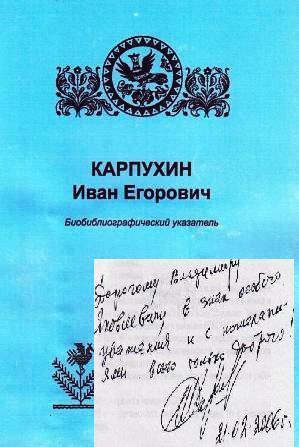 КАРПУХИН
Иван Егорович
Биобиблиографический указатель
Дорогому Владимиру
Яковлевичу в знак особого
уважения и с пожелани-
ями всего только доброго!
21.02.2006г.